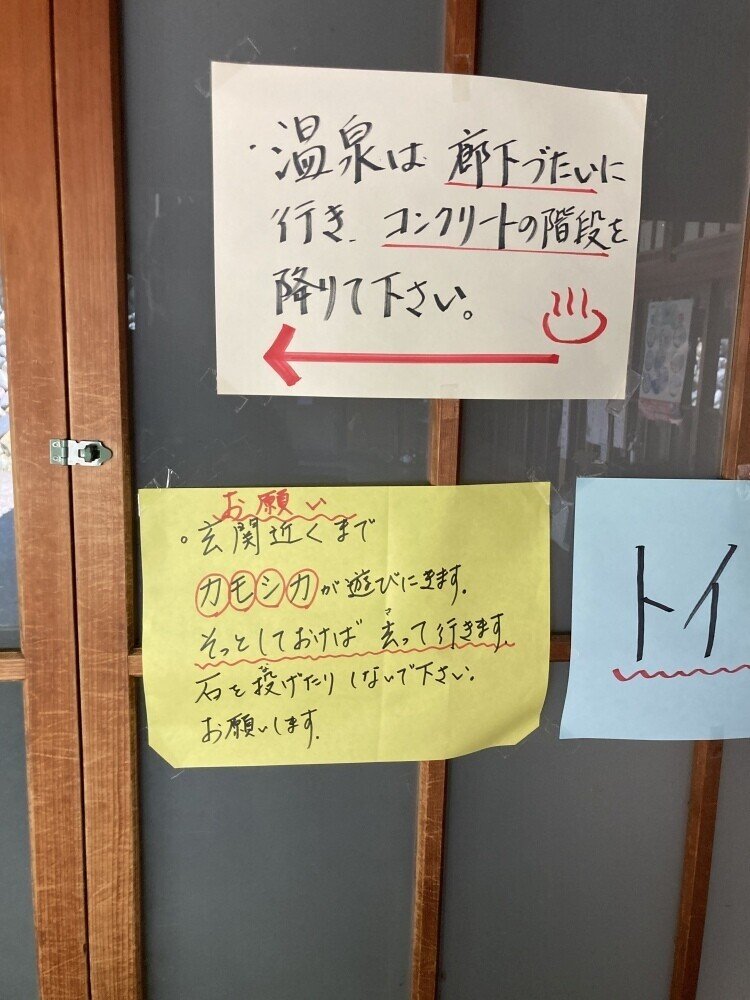 ・温泉は廊下づたいに
行き、コンクリートの階段を
降りて下さい。
お願い
。玄関近くまで
カモシカが遊びにきます。
そっとしておけば去って行きます
石を投げたりしないで下さい。
お願いします。
トイ